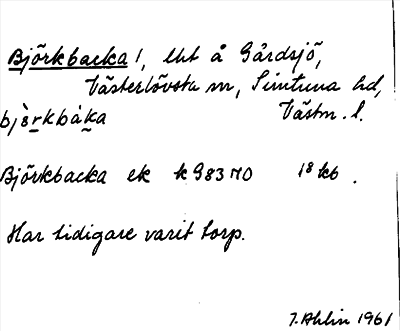 Björkbacka 1, lht å Gårdsjö,
Västerlövsta sn, Simtuna hd,
Västm. l.
bjö̀rkbàka
Björkbacka ek k 983 NO 18 kb.
Har tidigare varit torp.
J. Ahlin 1961